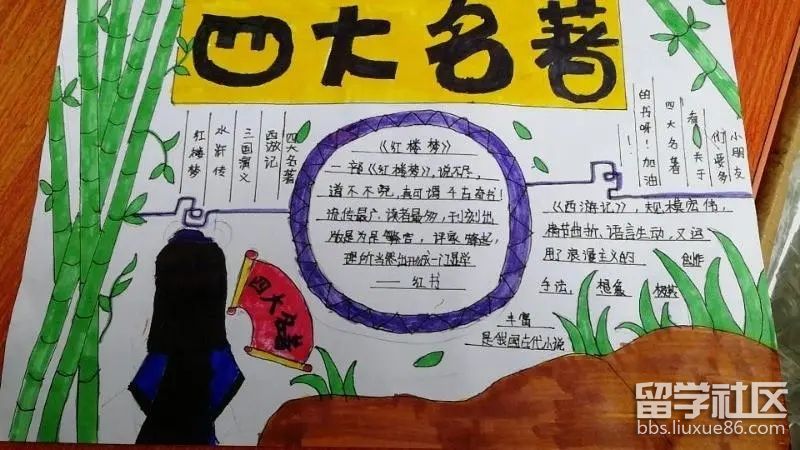 四大名著
四大名著
西游记
三国演义
水浒传
红楼梦
小朋友
们要多
看关于
四大名著
的书呀！加油
！
《红楼梦》
一部《红楼梦》，说不尽，
道不不完，真可谓千古奇书！
流传最广，读者最多，
版是为尽
一门显学
——红书
《西游记》，规模宏伟，
情节曲折，语言生动，又运
用了浪漫主义的 创作
手法，想象
丰富
是我国古代小说
四大名著
留学社区
bbs.liuxue86.com